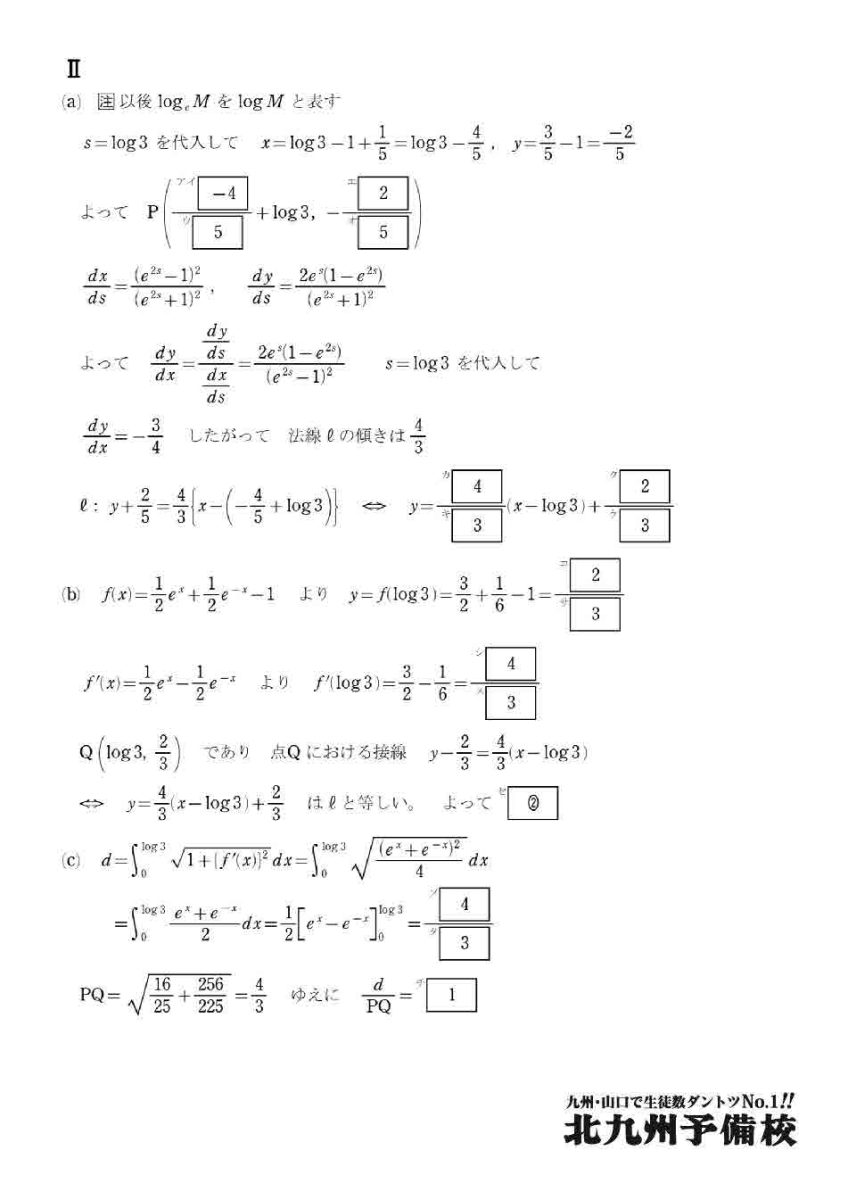 Ⅱ
(a) 注 以後 logₑM を logM と表す
s=log3 を代入して x=log3−1+1/5=log3−4/5 , y=3/5−1=−2/5
よって P(アイ −4 / ウ 5 +log3, − エ 2 / オ 5)
dx/ds=(e^{2s}−1)²/(e^{2s}+1)² , dy/ds=2e^s(1−e^{2s})/(e^{2s}+1)²
よって dy/dx=(dy/ds)/(dx/ds)=2e^s(1−e^{2s})/(e^{2s}−1)² s=log3 を代入して
dy/dx=−3/4 したがって 法線ℓの傾きは 4/3
ℓ: y+2/5=4/3{x−(−4/5+log3)} ⇔ y= カ 4 / キ 3 (x−log3)+ ク 2 / ケ 3
(b) f(x)=1/2 e^x+1/2 e^{−x}−1 より y=f(log3)=3/2+1/6−1= コ 2 / サ 3
f′(x)=1/2 e^x−1/2 e^{−x} より f′(log3)=3/2−1/6= シ 4 / ス 3
Q(log3, 2/3) であり 点Qにおける接線 y−2/3=4/3(x−log3)
⇔ y=4/3(x−log3)+2/3 はℓと等しい。 よって セ ②
(c) d=∫₀^{log3} √(1+{f′(x)}²) dx=∫₀^{log3} √((e^x+e^{−x})²/4) dx
=∫₀^{log3} (e^x+e^{−x})/2 dx=1/2[e^x−e^{−x}]₀^{log3}= ソ 4 / タ 3
PQ=√(16/25+256/225)=4/3 ゆえに d/PQ= チ 1
九州・山口で生徒数ダントツNo.1!!
北九州予備校